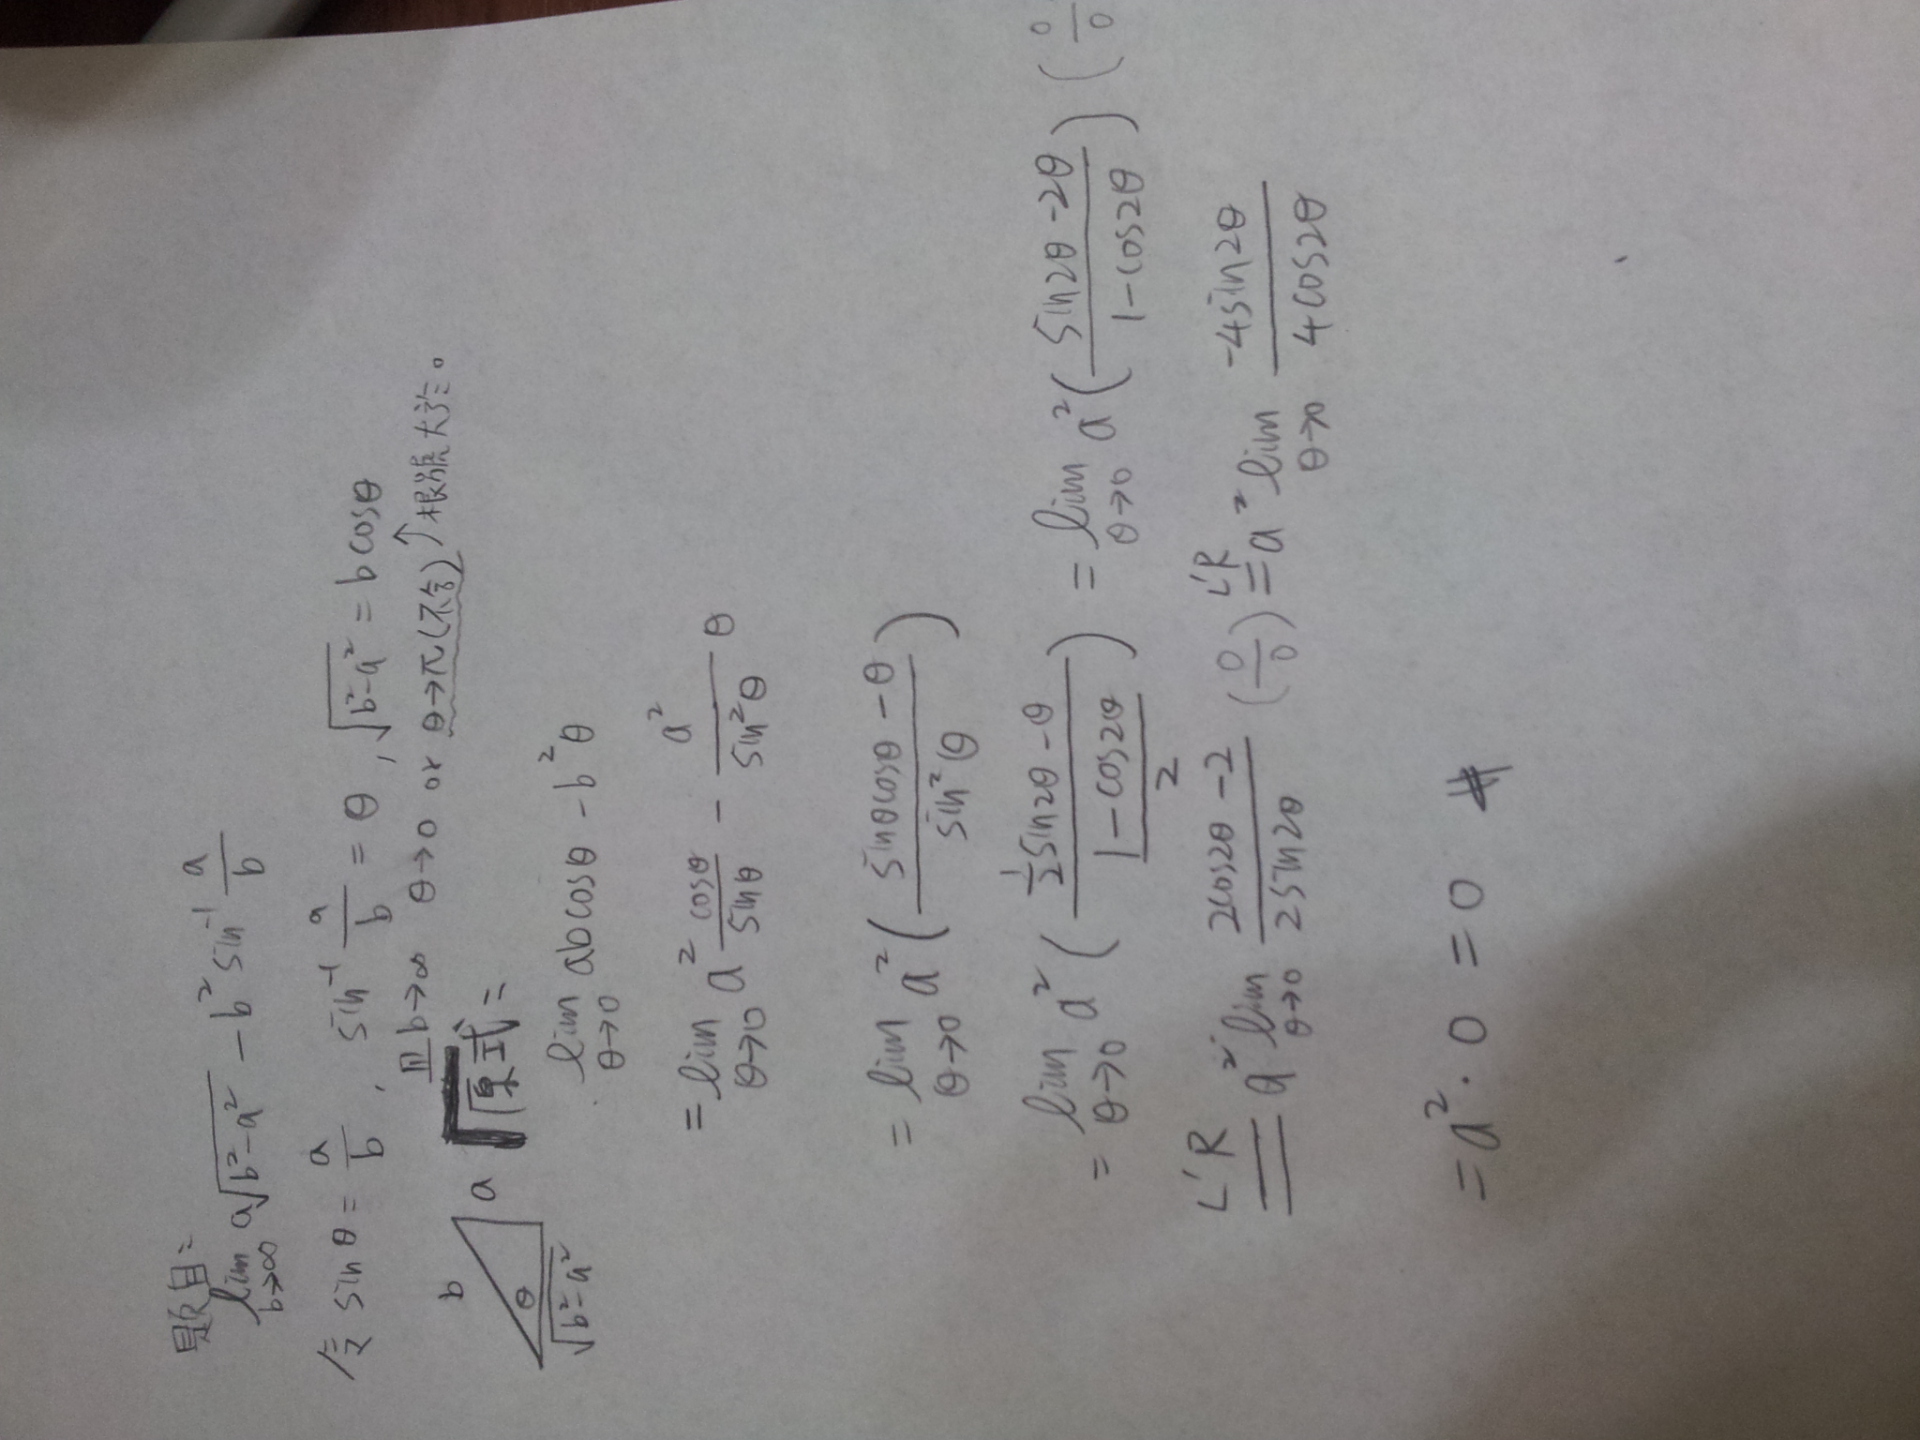 題目:
lim b→∞ a√(b²-a²) - b² sin⁻¹ a/b
令 sinθ = a/b , sin⁻¹ a/b = θ , √(b²-a²) = b cosθ
且 b→∞ θ→0 or θ→π(不合)↑根號大於。
b a θ √(b²-a²)
原式 =
lim θ→0 ab cosθ - b²θ
= lim θ→0 a² cosθ/sinθ - a²/sin²θ θ
= lim θ→0 a² ( (sinθcosθ - θ)/sin²θ )
= lim θ→0 a² ( (½ sin2θ - θ)/((1-cos2θ)/2) ) = lim θ→0 a² ( (sin2θ - 2θ)/(1-cos2θ) ) ( 0/0
L'R = a² lim θ→0 (2cos2θ - 2)/(2sin2θ) (0/0) L'R = a² lim θ→0 (-4sin2θ)/(4cos2θ)
= a² · 0 = 0 #